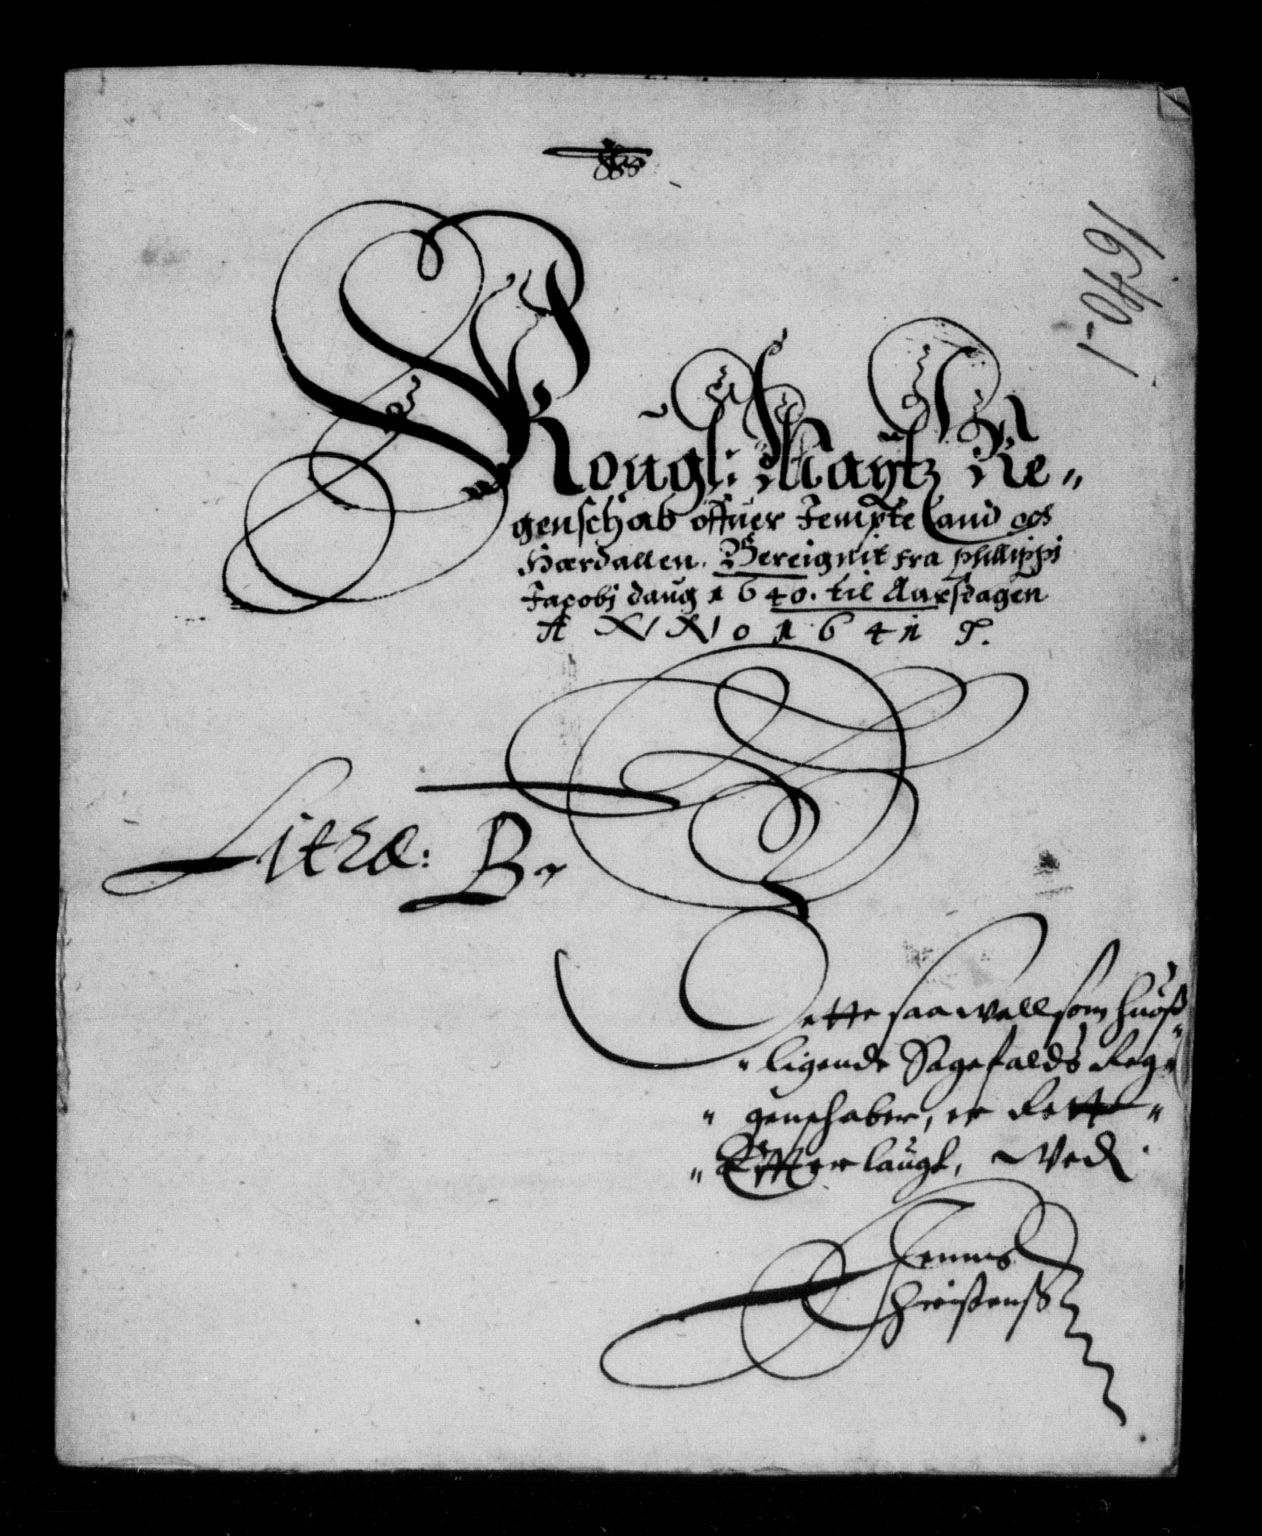 1640-1
Kongl: Maytz Re„
genschab offuer Jempteland oc
Hærdallen. Bereignit fra phillippi
Jacobj daug 1640. til Aarsdagen
ANNO 1641
Litræ: B.
Dette saa well som huoß„
„ ligende Sagefalds Reg„
„ genschaber, er Rett„
„ Efterlaugt, Ved
Jenns
Christenß